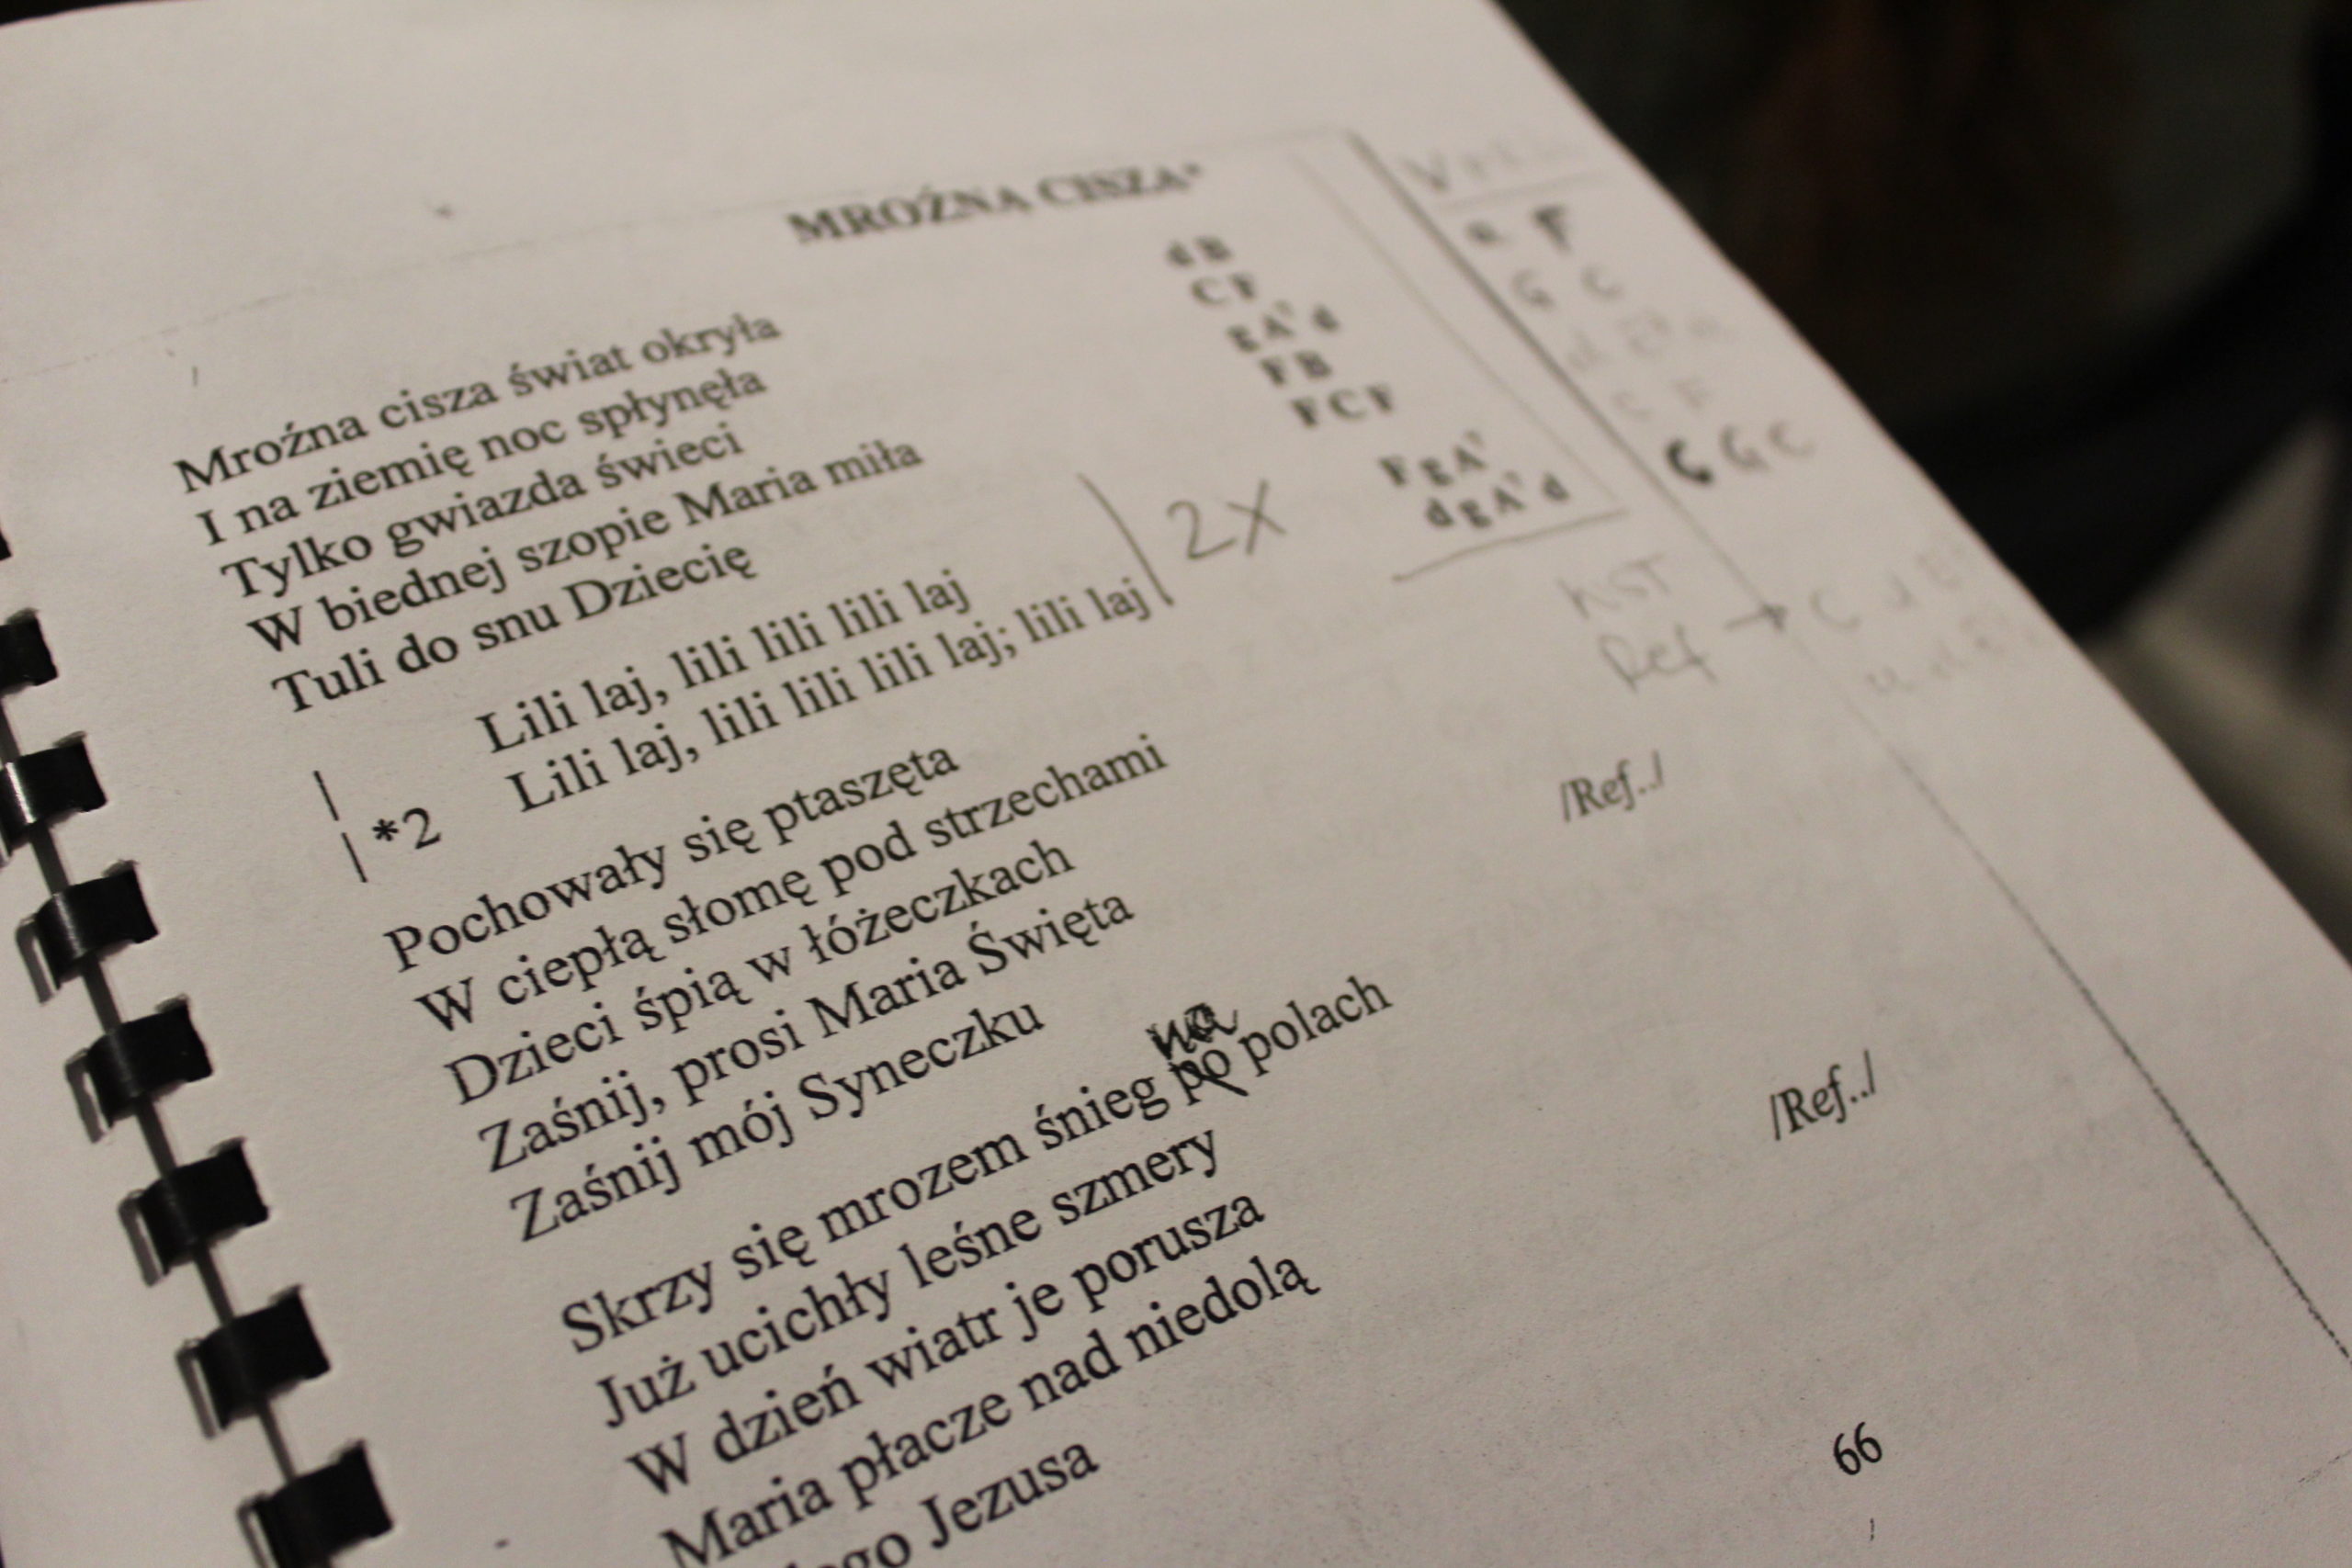 MROŹNA CISZA*
Mroźna cisza świat okryła d B
I na ziemię noc spłynęła C F
Tylko gwiazda świeci g A⁷ d
W biednej szopie Maria miła F B
Tuli do snu Dziecię F C F
Lili laj, lili lili lili laj F g A⁷
*2 Lili laj, lili lili lili laj; lili laj d g A⁷ d
2x
F
G C
C F
C G C
Ref → C d
Pochowały się ptaszęta
W ciepłą słomę pod strzechami
Dzieci śpią w łóżeczkach
Zaśnij, prosi Maria Święta
Zaśnij mój Syneczku
/Ref../
na
Skrzy się mrozem śnieg po polach
Już ucichły leśne szmery
W dzień wiatr je porusza
Maria płacze nad niedolą
Jezusa
/Ref../
66